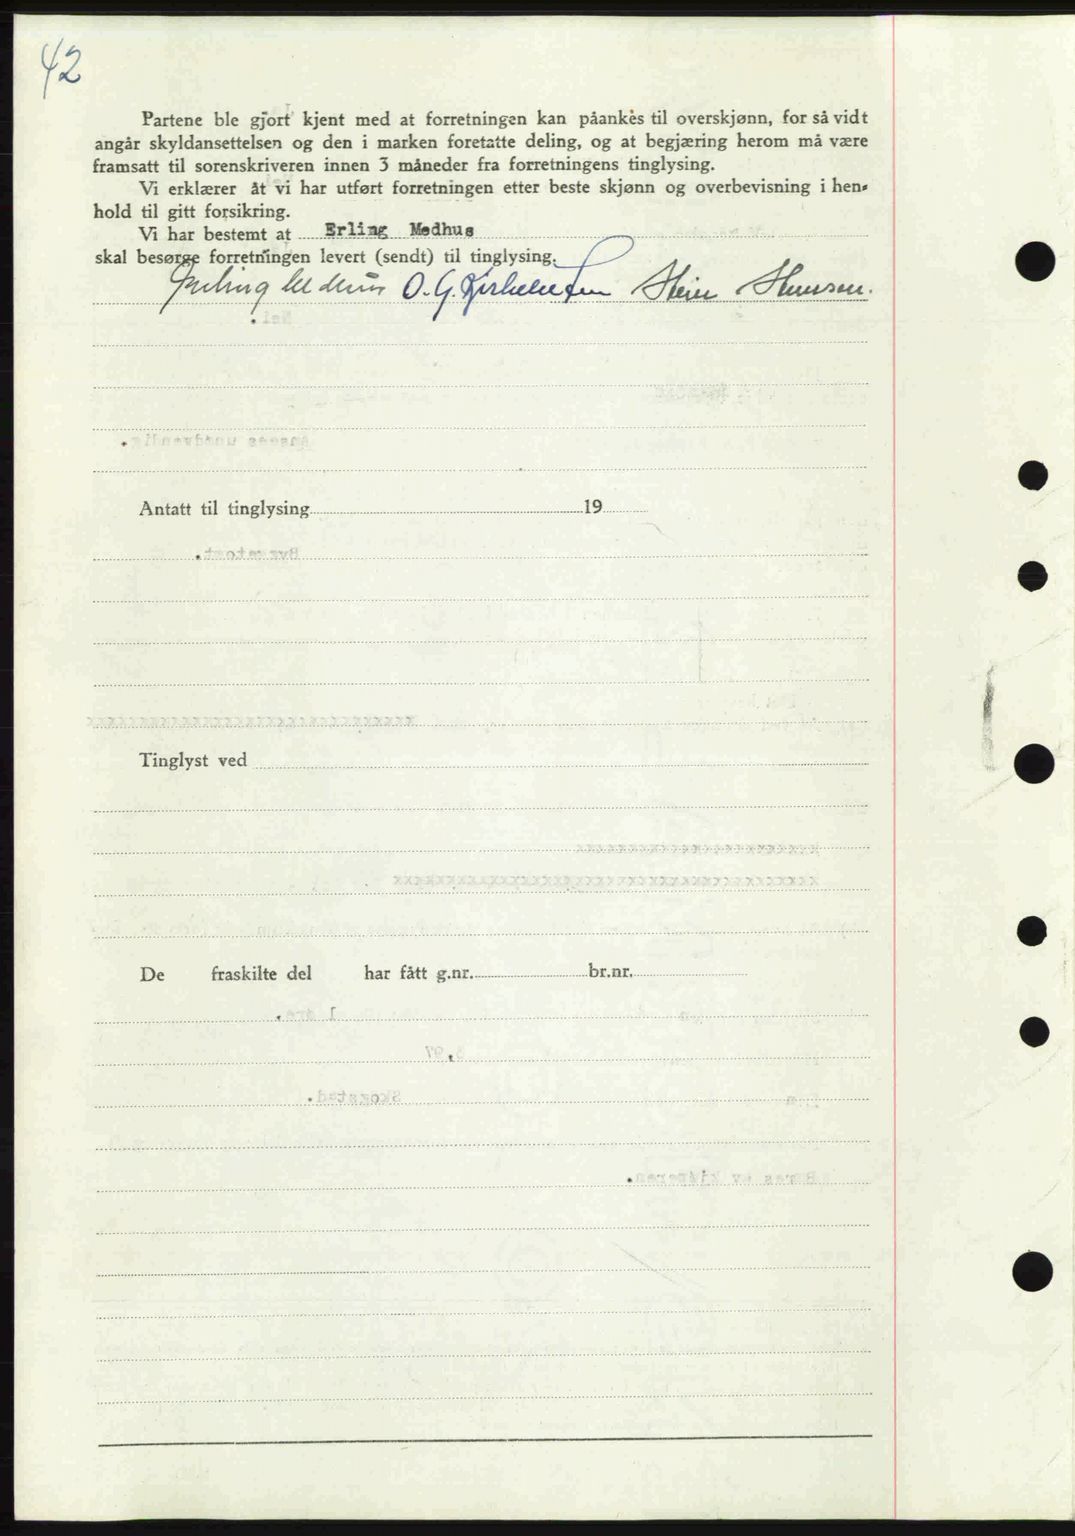 42
Partene ble gjort kjent med at forretningen kan påankes til overskjønn, for så vidt
angår skyldansettelsen og den i marken foretatte deling, og at begjæring herom må være
framsatt til sorenskriveren innen 3 måneder fra forretningens tinglysing.
Vi erklærer åt vi har utført forretningen etter beste skjønn og overbevisning i hen-
hold til gitt forsikring.
Vi har bestemt at Erling Medhus
skal besørge forretningen levert (sendt) til tinglysing.
Erling Medhus O. G.
Antatt til tinglysing 19
Tinglyst ved
De fraskilte del har fått g.nr. br.nr.